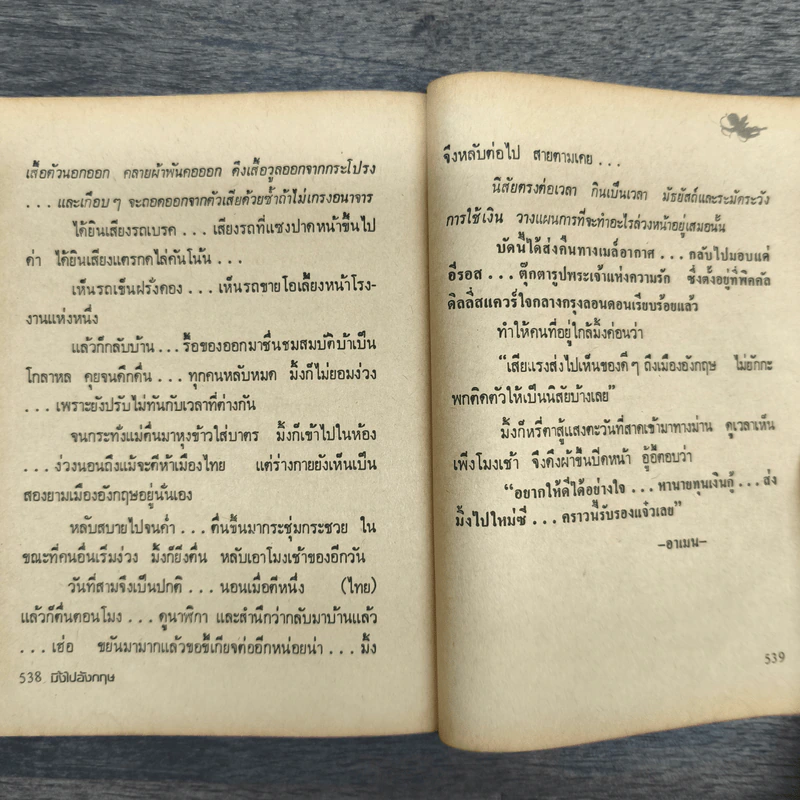 เสื้อตัวนอกออก คลายผ้าพันคอออก ดึงเสื้อวูลออกจากกระโปรง
... และเกือบๆ จะถอดออกจากตัวเสียด้วยซ้ำถ้าไม่เกรงอนาจาร
ได้ยินเสียงรถเบรค ... เสียงรถที่แซงปาดหน้าขึ้นไป
ด่า ได้ยินเสียงแตรกดไล่คันโน้น ...
เห็นรถเข็นฝรั่งดอง ... เห็นรถขายโอเลี้ยงหน้าโรง-
งานแห่งหนึ่ง
แล้วก็กลับบ้าน ... รื้อของออกมาชื่นชมสมบัติบ้าเป็น
โกลาหล คุยจนดึกดื่น ... ทุกคนหลับหมด มิ้งก็ไม่ยอมง่วง
... เพราะยังปรับไม่ทันกับเวลาที่ต่างกัน
จนกระทั่งแม่ตื่นมาหุงข้าวใส่บาตร มิ้งก็เข้าไปในห้อง
... ง่วงนอนถึงแม้จะตีห้าเมืองไทย แต่ร่างกายยังเห็นเป็น
สองยามเมืองอังกฤษอยู่นั่นเอง
หลับสบายไปจนค่ำ ... ตื่นขึ้นมากระชุ่มกระชวย ใน
ขณะที่คนอื่นเริ่มง่วง มิ้งก็ยิ่งตื่น หลับเอาโมงเช้าของอีกวัน
วันที่สามจึงเป็นปกติ ... นอนเมื่อตีหนึ่ง (ไทย)
แล้วก็ตื่นตอนโมง ... ดูนาฬิกา และสำนึกว่ากลับมาบ้านแล้ว
... เฮ่อ ขยันมามากแล้วขอขี้เกียจต่ออีกหน่อยน่า ... มิ้ง
538 มิ้งไปอังกฤษ
จึงหลับต่อไป สายตามเคย ...
นิสัยตรงต่อเวลา กินเป็นเวลา มัธยัสถ์และระมัดระวัง
การใช้เงิน วางแผนการที่จะทำอะไรล่วงหน้าอยู่เสมอนั้น
บัดนี้ได้ส่งคืนทางเมล์อากาศ ... กลับไปมอบแด่
อีรอส ... ตุ๊กตารูปพระเจ้าแห่งความรัก ซึ่งตั้งอยู่ที่พิคคัล
ดิลลี่สแควร์ใจกลางกรุงลอนดอนเรียบร้อยแล้ว
ทำให้คนที่อยู่ใกล้มิ้งค่อนว่า
“เสียแรงส่งไปเห็นของดีๆ ถึงเมืองอังกฤษ ไม่ยักกะ
พกติดตัวให้เป็นนิสัยบ้างเลย”
มิ้งก็หรี่ตาสู้แสงตะวันที่สาดเข้ามาทางม่าน ดูเวลาเห็น
เพิ่งโมงเช้า จึงดึงผ้าขึ้นปิดหน้า อู้อี้ตอบว่า
“อยากให้ดีได้อย่างใจ ... หานายทุนเงินกู้ ... ส่ง
มิ้งไปใหม่ซี ... คราวนี้รับรองแจ๋วเลย”
–อาเมน–
539